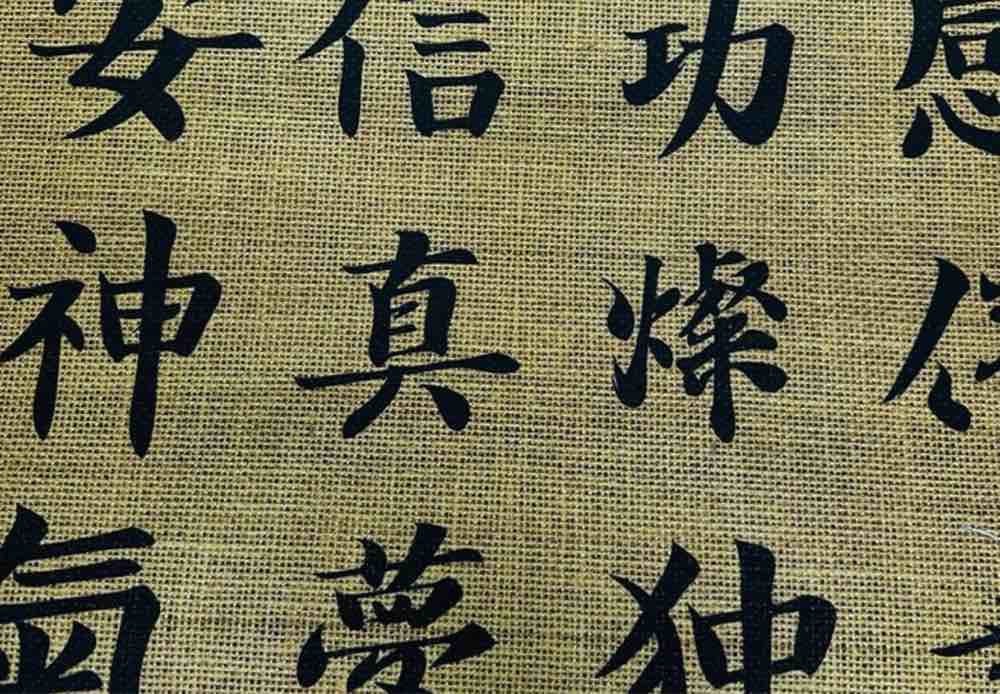 安信功感
神真燦
氣夢独